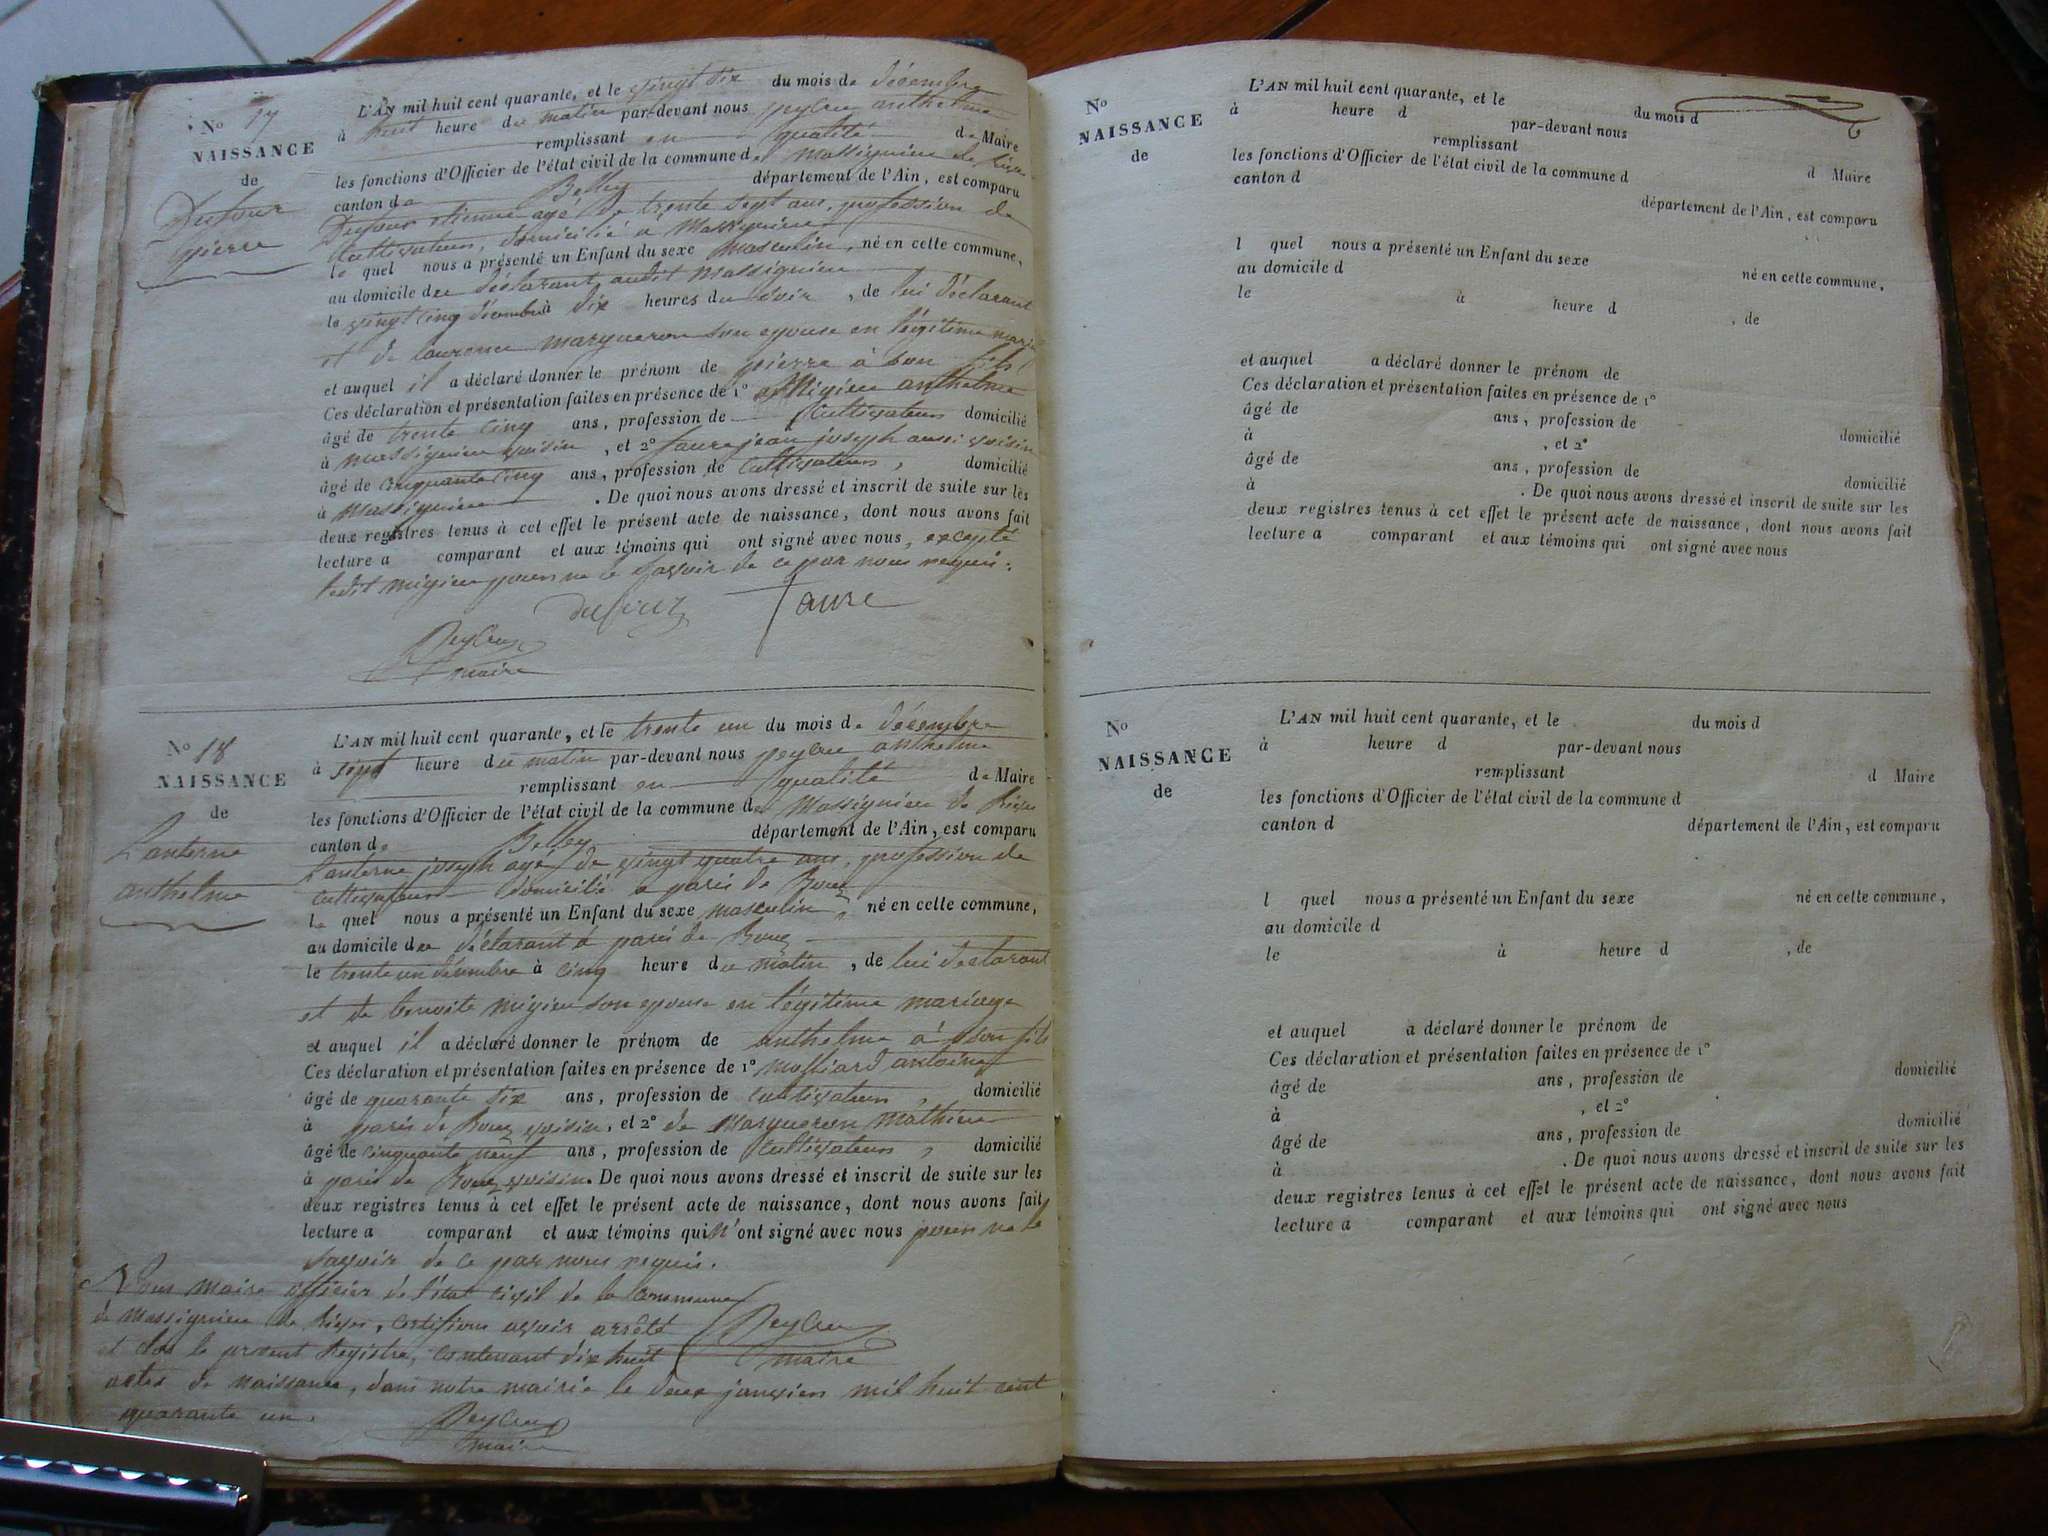 No 17
NAISSANCE
de
Dufour
pierre
L'AN mil huit cent quarante, et le vingt six du mois de décembre
à huit heure du matin par-devant nous peylue anthelme
remplissant en qualité de Maire
les fonctions d'Officier de l'état civil de la commune de Massignieu de Rives
canton de Belley département de l'Ain, est comparu
Dufour etienne agé de trente sept ans, profession de
Cultivateur, domicilié à Massignieu
le quel nous a présenté un Enfant du sexe masculin, né en cette commune,
au domicile du déclarant audit Massignieu
le vingt cinq décembre à dix heures du soir, de lui déclarant
et de laurence margueron son epouse en légitime
et auquel il a déclaré donner le prénom de pierre à son fils
Ces déclaration et présentation faites en présence de 1° Migieu anthelme
âgé de trente cinq ans, profession de Cultivateur domicilié
à Massignieu voisin, et 2° faure jean joseph aussi voisin
âgé de cinquante cinq ans, profession de Cultivateur, domicilié
à Massignieu. De quoi nous avons dressé et inscrit de suite sur les
deux registres tenus à cet effet le présent acte de naissance, dont nous avons fait
lecture a comparant et aux témoins qui ont signé avec nous, excepté
ledit migieu pour ne le savoir de ce par nous requis.
dufour faure
maire
No 18
NAISSANCE
de
Lanterne
anthelme
L'AN mil huit cent quarante, et le trente un du mois de décembre
à sept heure du matin par-devant nous peylue anthelme
remplissant en qualité de Maire
les fonctions d'Officier de l'état civil de la commune de Massignieu de Rives
canton de Belley département de l'Ain, est comparu
Lanterne joseph agé de vingt quatre ans, profession de
cultivateur domicilié a paris de
le quel nous a présenté un Enfant du sexe masculin, né en cette commune,
au domicile du déclarant à paris de
le trente un décembre à cinq heure du matin, de lui déclarant
et de benoite migieu son epouse en légitime mariage
et auquel il a déclaré donner le prénom de anthelme à son fils
Ces déclaration et présentation faites en présence de 1° antoine
âgé de quarante six ans, profession de cultivateur, domicilié
à paris de voisin, et 2° de Margueron Mathieu
âgé de cinquante neuf ans, profession de Cultivateur, domicilié
à paris de voisin. De quoi nous avons dressé et inscrit de suite sur les
deux registres tenus à cet effet le présent acte de naissance, dont nous avons fait
lecture a comparant et aux témoins qui n'ont signé avec nous pour ne le
savoir de ce par nous requis.
Nous maire officier de l'état civil de la commune
de Massignieu de Rives, certifions avoir arrêté
et clos le présent Registre, contenant dix huit
maire
actes de naissance, dans notre mairie le deux janvier mil huit cent
quarante un.
maire
No
NAISSANCE
de
L'AN mil huit cent quarante, et le du mois d
à heure d par-devant nous
remplissant d Maire
les fonctions d'Officier de l'état civil de la commune d
canton d département de l'Ain, est comparu
l quel nous a présenté un Enfant du sexe né en cette commune,
au domicile d
le à heure d , de
et auquel a déclaré donner le prénom de
Ces déclaration et présentation faites en présence de 1°
âgé de ans, profession de domicilié
à , et 2°
âgé de ans, profession de domicilié
à . De quoi nous avons dressé et inscrit de suite sur les
deux registres tenus à cet effet le présent acte de naissance, dont nous avons fait
lecture a comparant et aux témoins qui ont signé avec nous
No
NAISSANCE
de
L'AN mil huit cent quarante, et le du mois d
à heure d par-devant nous
remplissant d Maire
les fonctions d'Officier de l'état civil de la commune d
canton d département de l'Ain, est comparu
l quel nous a présenté un Enfant du sexe né en cette commune,
au domicile d
le à heure d , de
et auquel a déclaré donner le prénom de
Ces déclaration et présentation faites en présence de 1°
âgé de ans, profession de domicilié
à , et 2°
âgé de ans, profession de domicilié
à . De quoi nous avons dressé et inscrit de suite sur les
deux registres tenus à cet effet le présent acte de naissance, dont nous avons fait
lecture a comparant et aux témoins qui ont signé avec nous